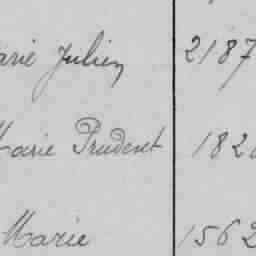 arie Julien 2187
Marie Prudent 182
Marie 1562